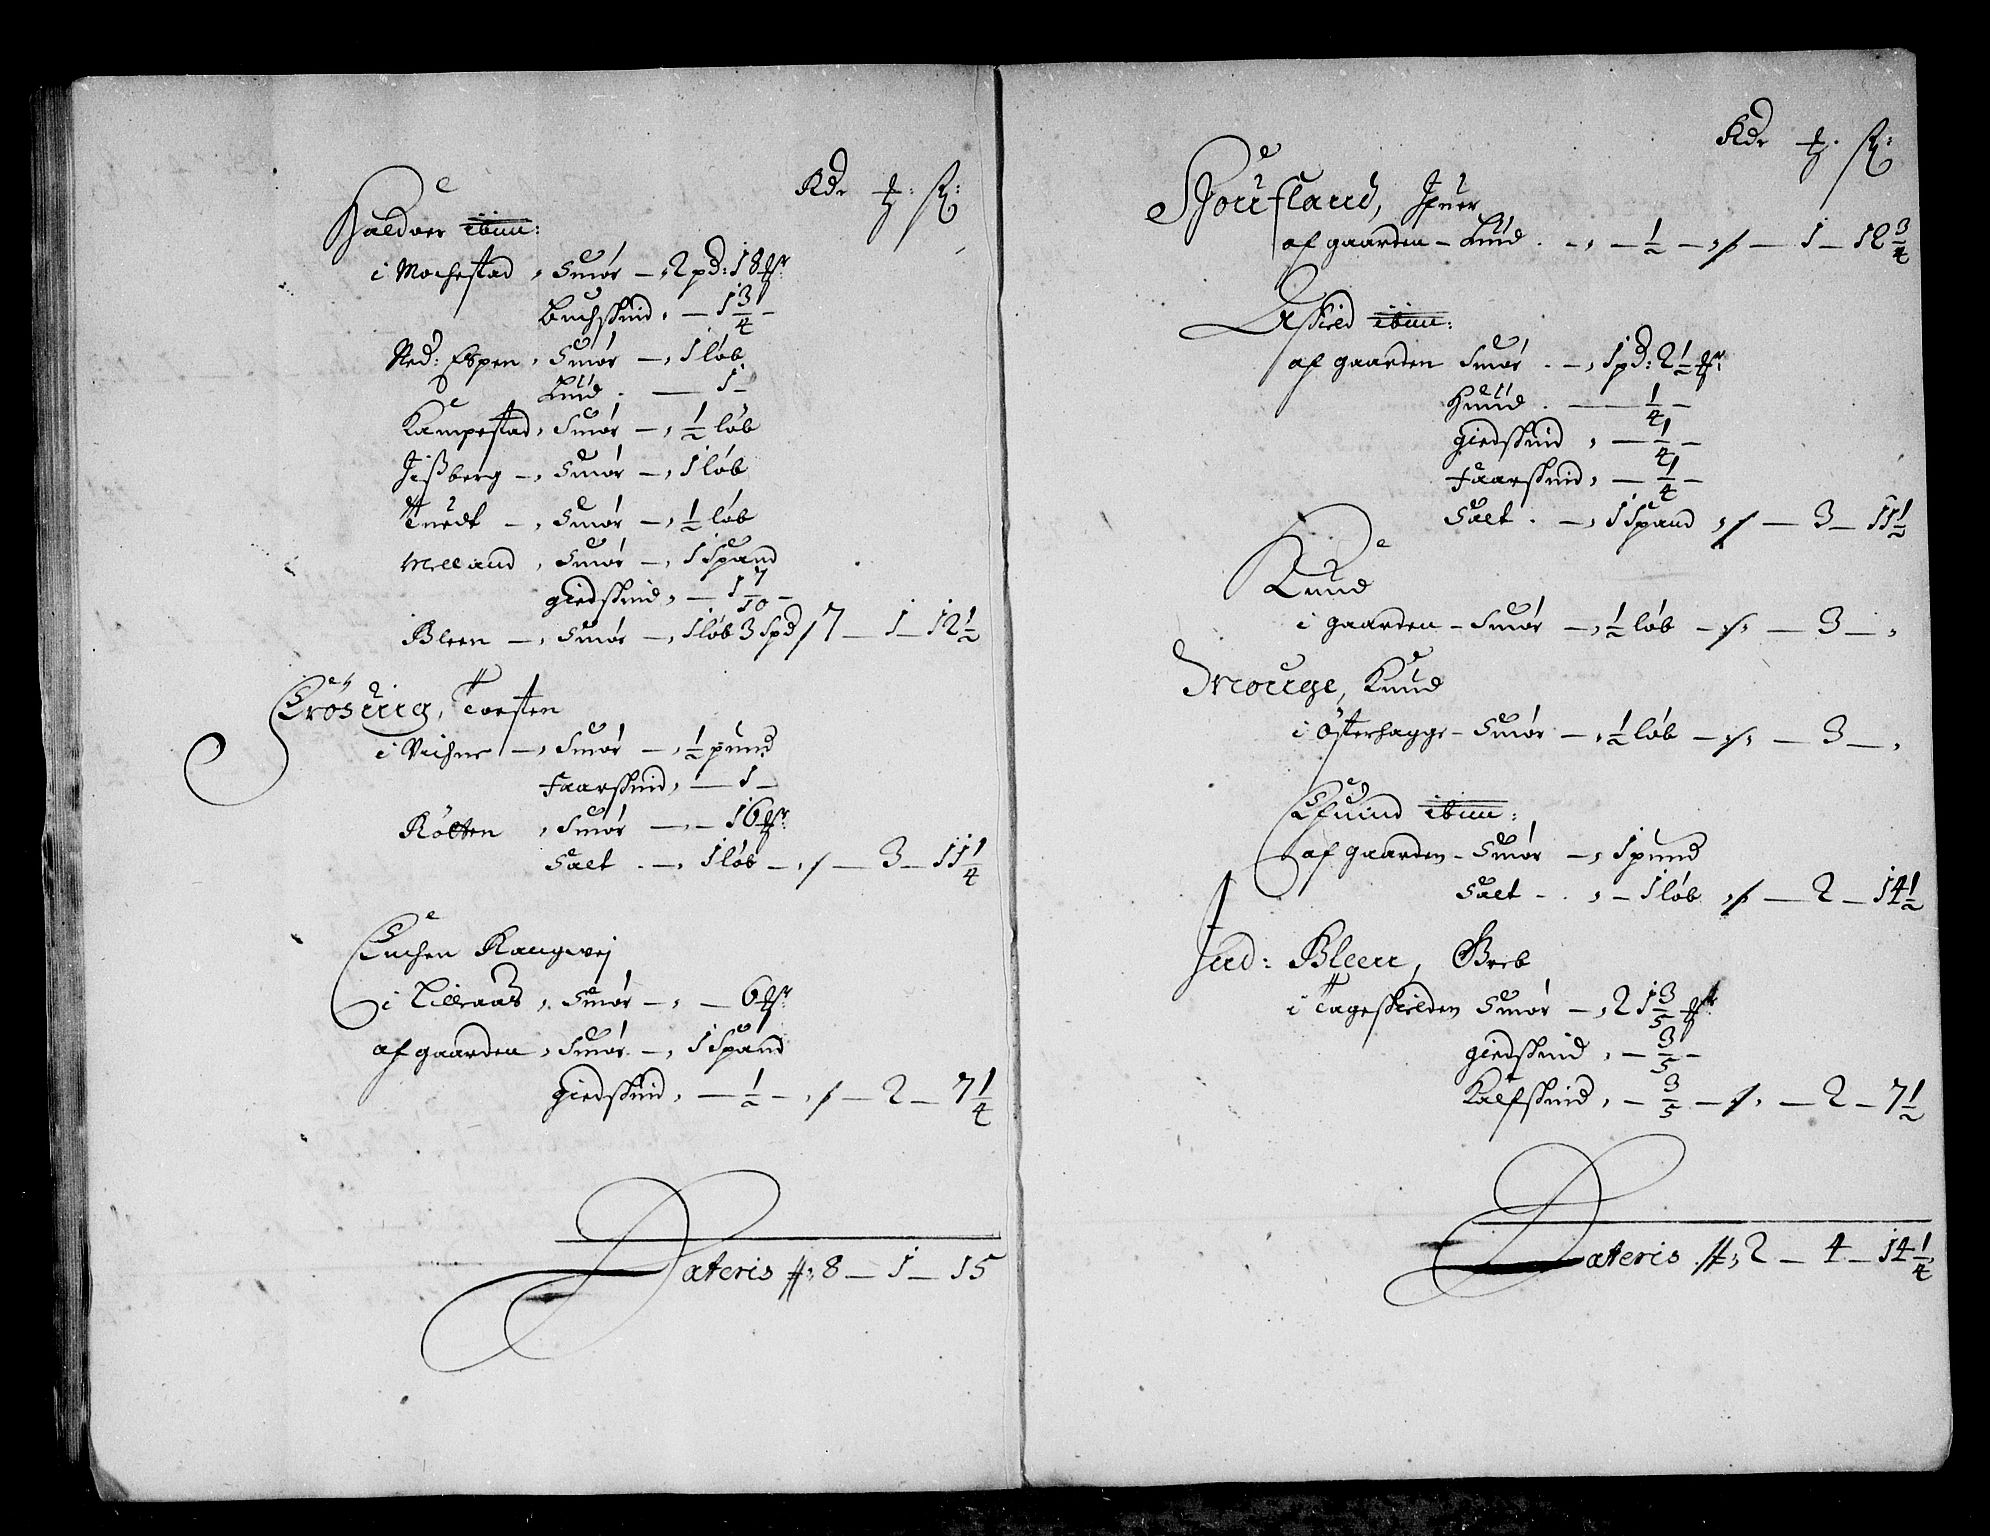 Rdr
Haldvor ibm:
i Mochestad, Smør – 2 pd: 18
Buchskind, – 1 3/4 –
Ned: Espen, Smør –, 1 løb
Hud. – 1 –
Kampestad, Smør –, 1/2 løb
Jißberg –, Smør –, 1 løb
Tuedt –, Smør –, 1/2 løb
Melland, Smør –, 1 Spand
giedskind, – 1 7/10 –
Bleen –, Smør –, 1 løb 3 Spd / 7 – 1 – 12 1/2
Torsten
i –, Smør –, 1/2 pund
Faarskind, – 1 –
Rötten, Smør –, – 16
Salt. –, 1 løb –, / – 3 – 11 1/4
Enchen Rangwej
i Lillraas, Smør –, – 6
af gaarden, Smør. –, 1 Spand
giedskind, – 1/2 –, / – 2 – 7 1/4
Lateris #: 8 – 1 – 15
Rdr
Schoufland, Ifuer
af gaarden – Hud. –, – 1/2 –, / – 1 – 12 3/4
Aschild ibm:
af gaarden Smør. –, 1 pd: 2 1/2
Huud. – 1/4 –
giedskind, – 1/4 –
Faarskind, – 1/4 –
Salt. –, 1 Spand, / – 3 – 11 1/2
Knud
i gaarden – Smør –, 1/2 løb –, / – 3 –,
Mouge, Knud
i Østerhagge – Smør –, 1/2 løb –, / – 3 –,
Efuind ibm:
af gaarden – Smør –, 1 pund
Salt –. , – 1 løb, / – 2 – 14 1/2
Ind: Bleen, Greb
i Tageskilden Smør –, 21 3/5
giedskind, – 3/5 –
Kalfskind, – 3/5 – / – 2 – 7 1/2
Lateris #: 2 – 4 – 14 1/4